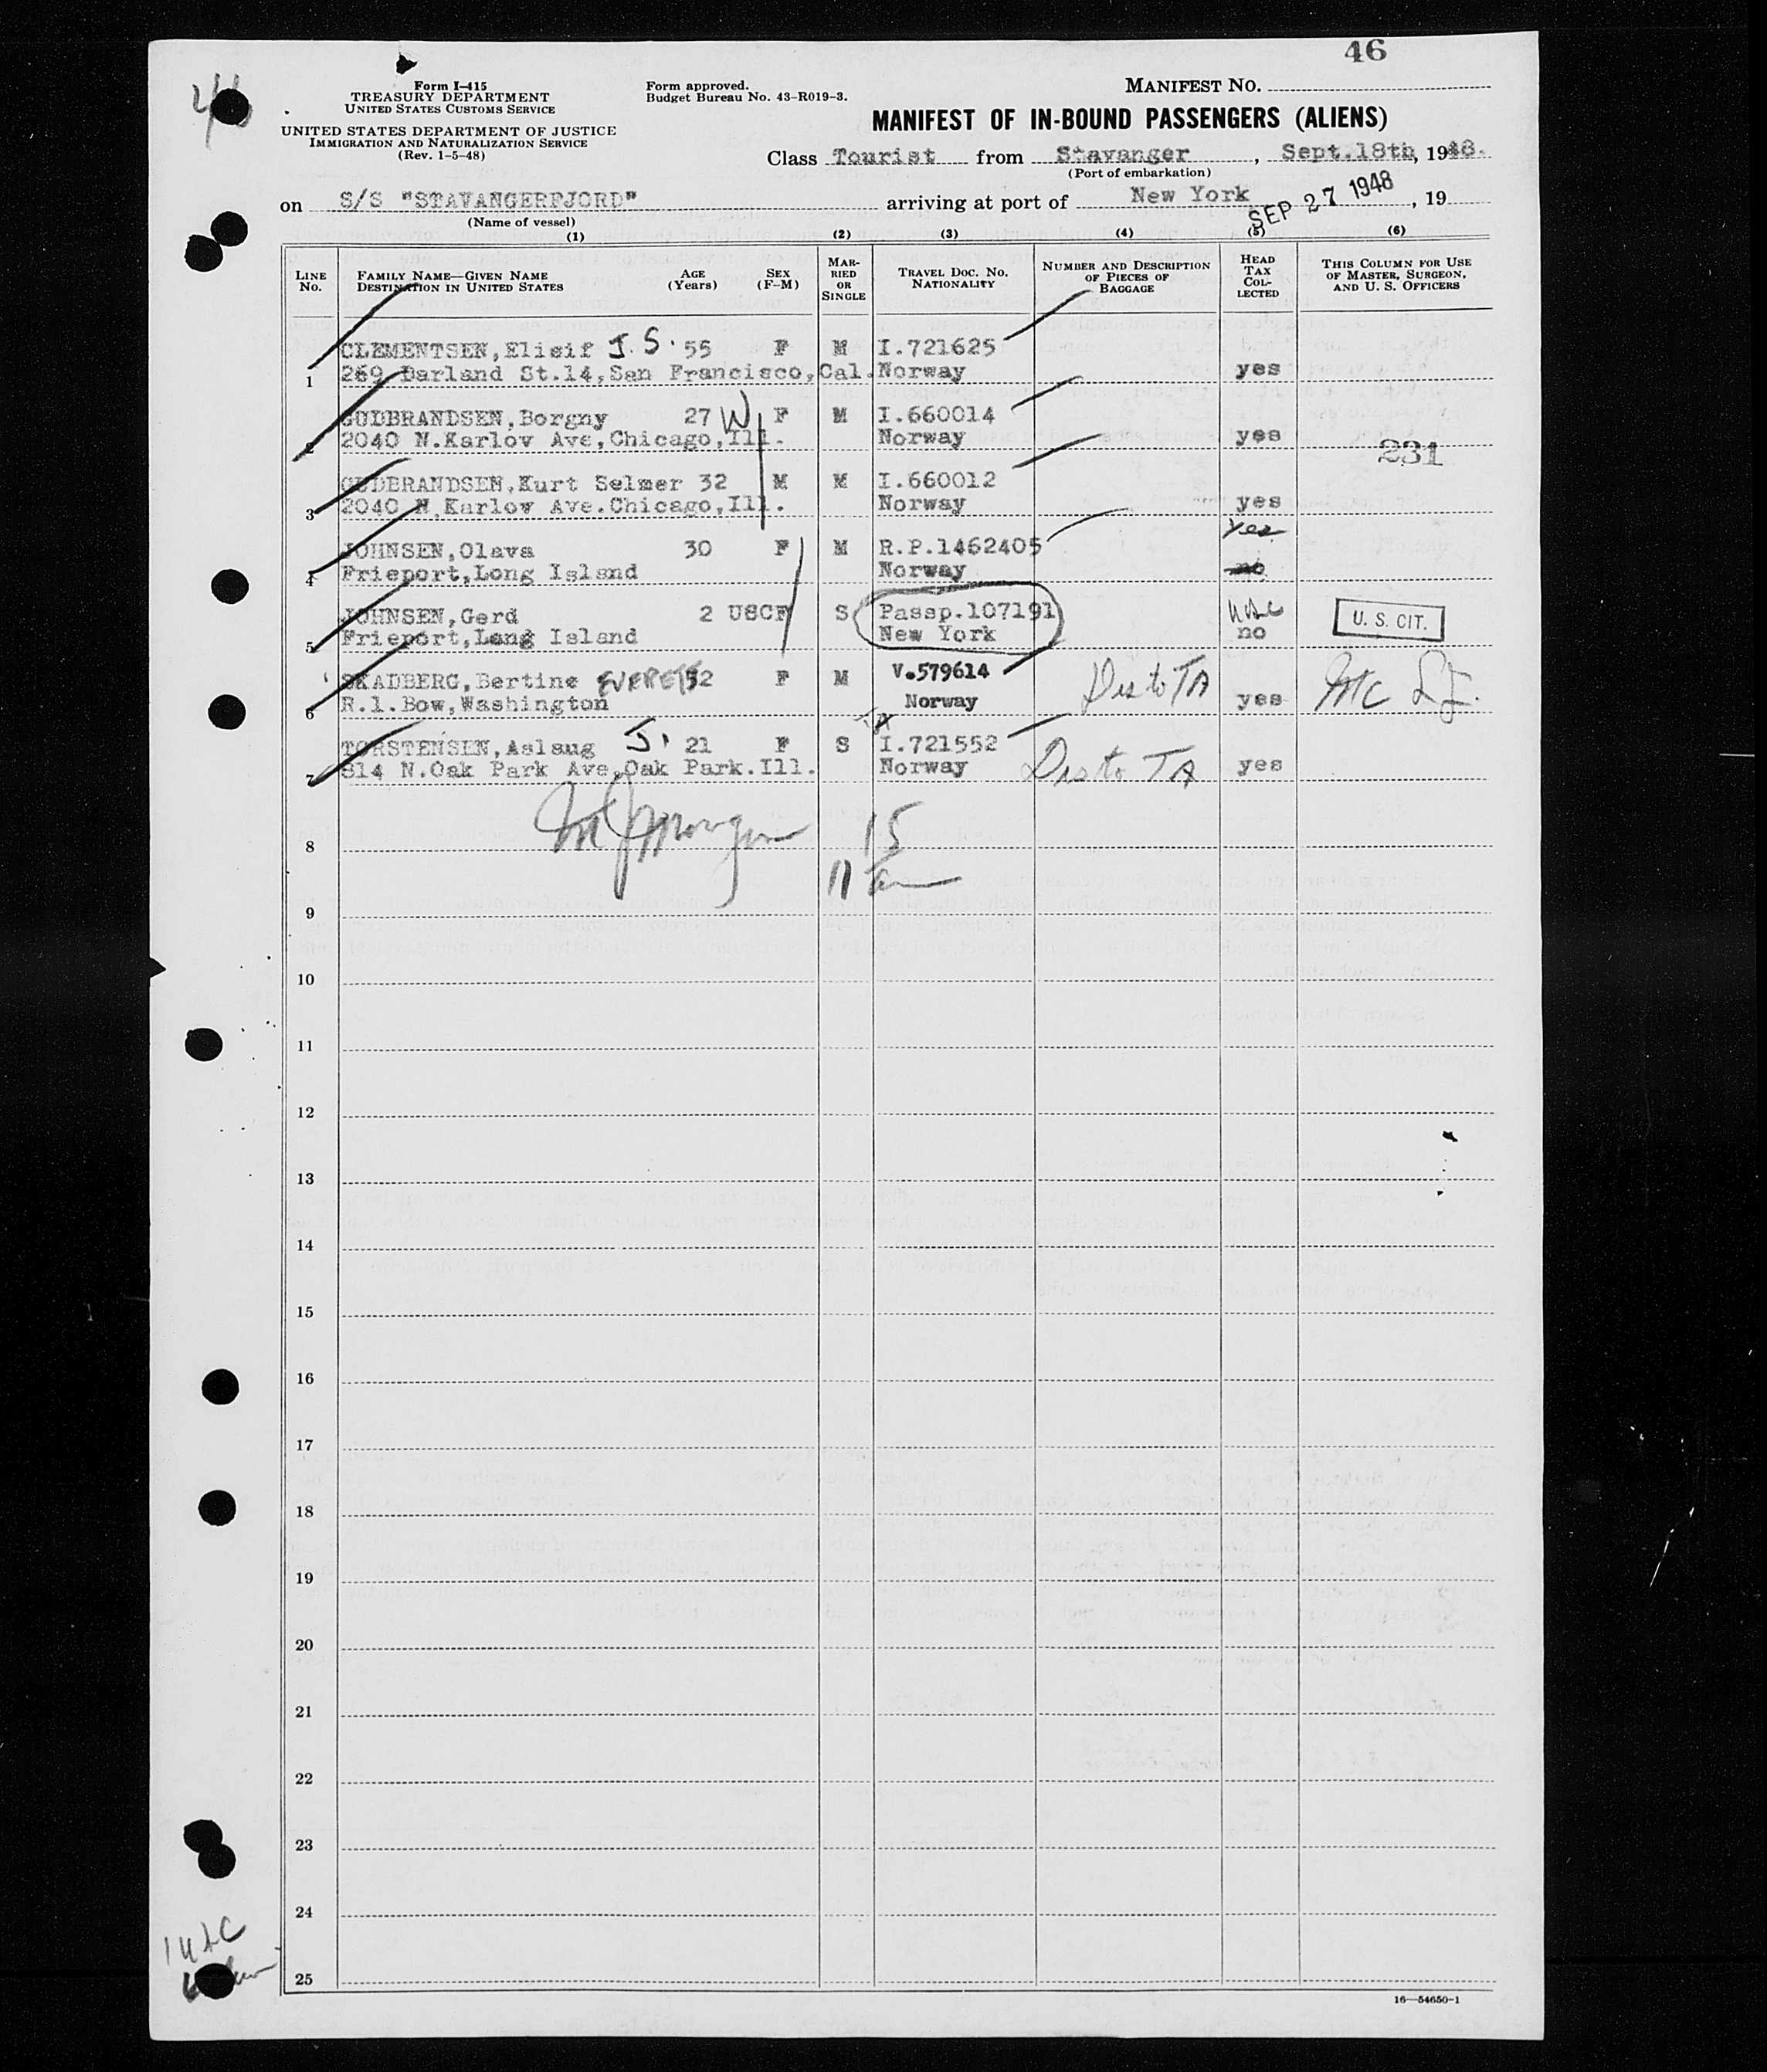 46
46
Form I-415
TREASURY DEPARTMENT
UNITED STATES CUSTOMS SERVICE
UNITED STATES DEPARTMENT OF JUSTICE
IMMIGRATION AND NATURALIZATION SERVICE
(Rev. 1-5-48)
Form approved.
Budget Bureau No. 43-R019-3.
MANIFEST NO.
MANIFEST OF IN-BOUND PASSENGERS (ALIENS)
Class Tourist from Stavanger, Sept.18th, 1948.
(Port of embarkation)
on S/S "STAVANGERFJORD" arriving at port of New York SEP 27 1948, 19
(Name of vessel)
(1) (2) (3) (4) (5) (6)
LINE No. FAMILY NAME—GIVEN NAME DESTINATION IN UNITED STATES AGE (Years) SEX (F-M) MARRIED OR SINGLE TRAVEL DOC. NO. NATIONALITY NUMBER AND DESCRIPTION OF PIECES OF BAGGAGE HEAD TAX COLLECTED THIS COLUMN FOR USE OF MASTER, SURGEON, AND U. S. OFFICERS
CLEMENTSEN, Elisif J. S. 55 F M I.721625
1 269 Darland St.14, San Francisco, Cal. Norway yes
GUDBRANDSEN, Borgny 27 W F M I.660014
2 2040 N.Karlov Ave, Chicago, Ill. Norway yes
231
GUDBRANDSEN, Kurt Selmer 32 M M I.660012
3 2040 N.Karlov Ave.Chicago, Ill. Norway yes
JOHNSEN, Olava 30 F M R.P.1462405 yes
4 Frieport, Long Island Norway no
JOHNSEN, Gerd 2 USC F S Passp.107191 USC U. S. CIT.
5 Frieport, Long Island New York no
SKADBERG, Bertine EVERETT 52 F M V.579614 Dis to TA
6 R.1.Bow, Washington Norway yes
TORSTENSEN, Aslaug J. 21 F S I.721552 Dis to TA
7 814 N.Oak Park Ave, Oak Park.Ill. Norway yes
15
8
11
9
10
11
12
13
14
15
16
17
18
19
20
21
22
23
24
1 USC
25
16—54650-1